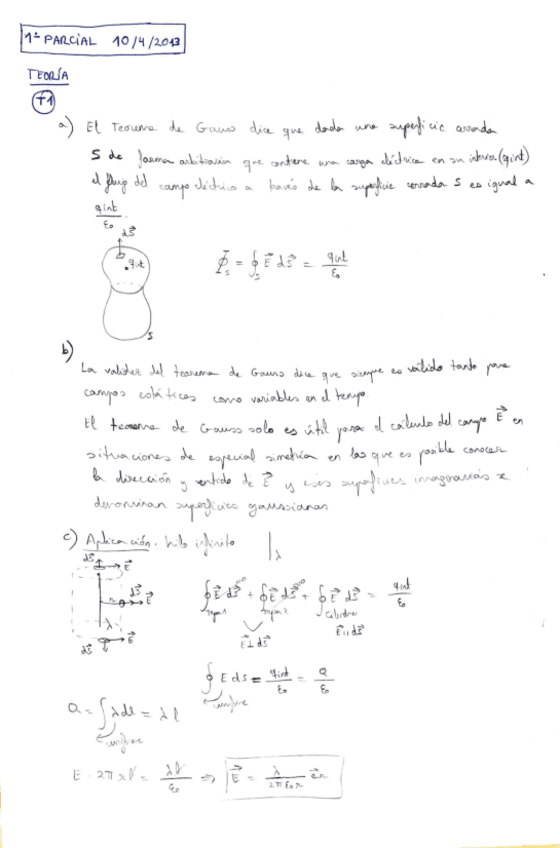 1º PARCIAL 10/4/2013
TEORÍA
T1
a) El Teorema de Gauss dice que dada una superficie cerrada
S de forma arbitraria que contiene una carga eléctrica en su interior (qint)
el flujo del campo eléctrico a través de la superficie cerrada S es igual a
qint/ε₀.
dS⃗
qint
Φ_s = ∮_s E⃗ dS⃗ = qint/ε₀
S
b)
La validez del teorema de Gauss dice que siempre es válido tanto para
campos estáticos como variables en el tiempo.
El teorema de Gauss solo es útil para el cálculo del campo E⃗ en
situaciones de especial simetría en las que es posible conocer
la dirección y sentido de E⃗ y esas superficies imaginarias se
denominan superficies gaussianas
c) Aplicación. hilo infinito λ
dS⃗ E⃗
r dS⃗ E⃗
λ
dS⃗ E⃗
∮ E⃗ dS⃗ + ∮ E⃗ dS⃗ + ∮ E⃗ dS⃗ = qint/ε₀
tapa 1 tapa 2 cilindro
E⃗ ⊥ dS⃗ E⃗ || dS⃗
∮ E ds = qint/ε₀ = Q/ε₀
uniforme
Q = ∫ λ dl = λ l
uniforme
E · 2π r l = λ l/ε₀ ⇒ E⃗ = λ/2π ε₀ r e⃗r